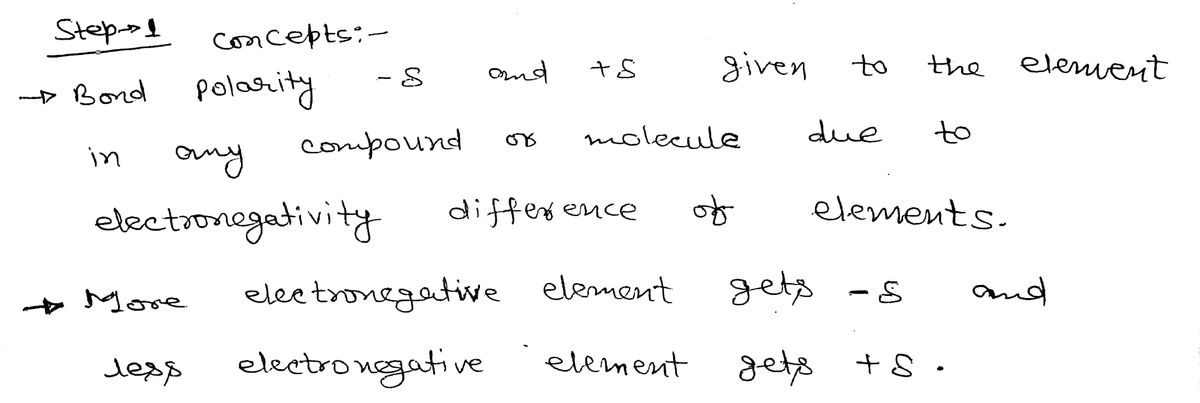 Step→1 concepts:-
→ Bond polarity -δ and +δ given to the element
in any compound or molecule due to
electronegativity difference of elements.
→ More electronegative element gets -δ and
less electronegative element gets +δ.